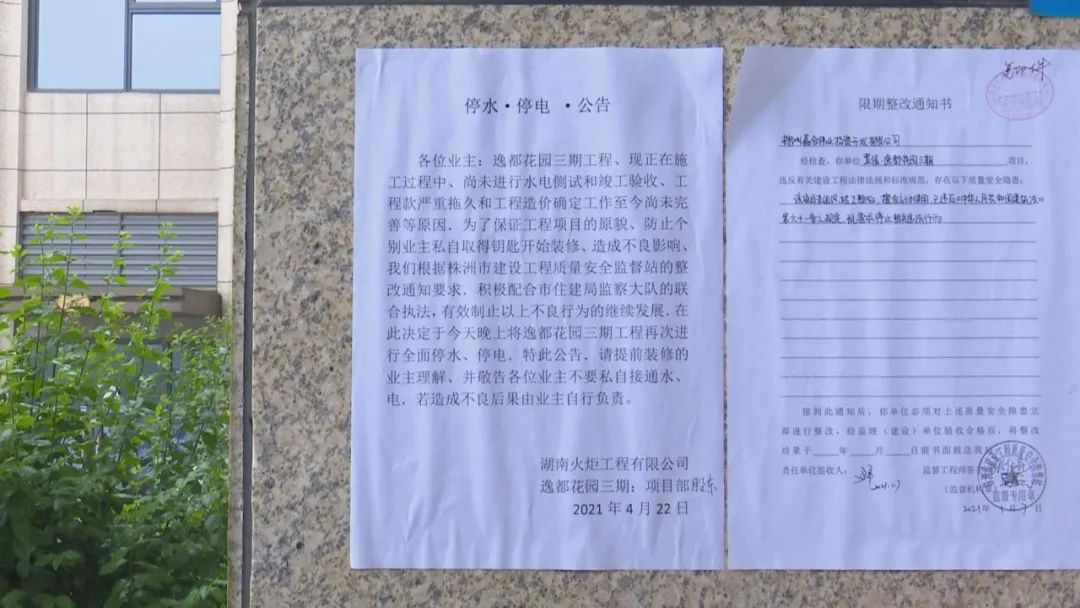 停水·停电 ·公告
各位业主：逸都花园三期工程、现正在施
工过程中、尚未进行水电侧试和竣工验收、工
程款严重拖久和工程造价确定工作至今尚未完
善等原因．为了保证工程项目的原貌、防止个
别业主私自取得钥匙开始装修、造成不良影响、
我们根据株洲市建设工程质量安全监督站的整
改通知要求．积极配合市住建局监察大队的联
合执法，有效制止以上不良行为的继续发展．在
此决定于今天晚上将逸都花园三期工程再次进
行全面停水、停电．特此公告．请提前装修的
业主理解、并敬告各位业主不要私自接通水、
电．若造成不良后果由业主自行负责。
湖南火炬工程有限公司
逸都花园三期：项目部股东
2021年4月22日
复印件
限期整改通知书
投资开发有限公司
经检查，你单位 逸都花园三期 项目，
违反有关建设工程法律法规和标准规范，存在以下质量安全隐患：
已违反《中华人民共和国建筑法》
第六十一条之规定
接到此通知后，你单位必须对上述质量安全隐患立
即进行整改，经监理（建设）单位验收合格后，将整改
结果于 年 月 日前书面报送我站
责任单位签收人： 监督工程师签字
（监督机构
监督专用章
2021年 月 日